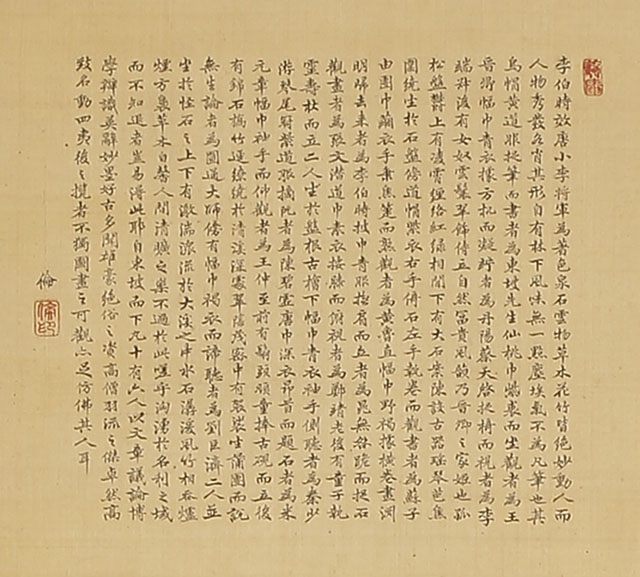 李伯時效唐小李將軍為著色泉石雲物草木花竹皆絕妙動人而
人物秀發各肖其形自有林下風味無一點塵埃氣不為凡筆也其
烏帽黃道服捉筆而書者為東坡先生仙桃巾紫裘而坐觀者為王
晉卿幅巾青衣據方机而凝竚者為丹陽蔡天啓捉椅而視者為李
端叔後有女奴雲鬟翠飾侍立自然富貴風韻乃晉卿之家姬也孤
松盤鬱上有凌霄纏絡紅綠相間下有大石案陳設古器瑤琴芭蕉
圍繞坐於石盤傍道帽紫衣右手倚石左手執卷而觀書者為蘇子
由團巾繭衣手秉蕉箑而熟觀者為黃魯直幅巾野褐據橫卷畫淵
明歸去來者為李伯時披巾青服撫肩而立者為晁無咎跪而捉石
觀畫者為張文潛道巾素衣按膝而俯視者為鄭靖老後有童子執
靈壽杖而立二人坐於盤根古檜下幅巾青衣袖手側聽者為秦少
游琴尾冠紫道服摘阮者為陳碧虛唐巾深衣昂首而題石者為米
元章幅巾袖手而仰觀者為王仲至前有鬅頭頑童捧古硯而立後
有錦石橋竹逕繚繞於清溪深處翠陰茂密中有袈裟坐蒲團而說
無生論者為圓通大師傍有幅巾褐衣而諦聽者為劉巨濟二人並
坐於怪石之上下有激湍淙流於大溪之中水石潺湲風竹相吞爐
煙方裊草木自馨人間清曠之樂不過於此嗟乎洶湧於名利之域
而不知退者豈易得此耶自東坡而下凡十有六人以文章議論博
學辯識英辭妙墨好古多聞雄豪絕俗之資高僧羽流之傑卓然高
致名動四夷後之攬者不獨圖畫之可觀亦足仿佛其人耳
倫